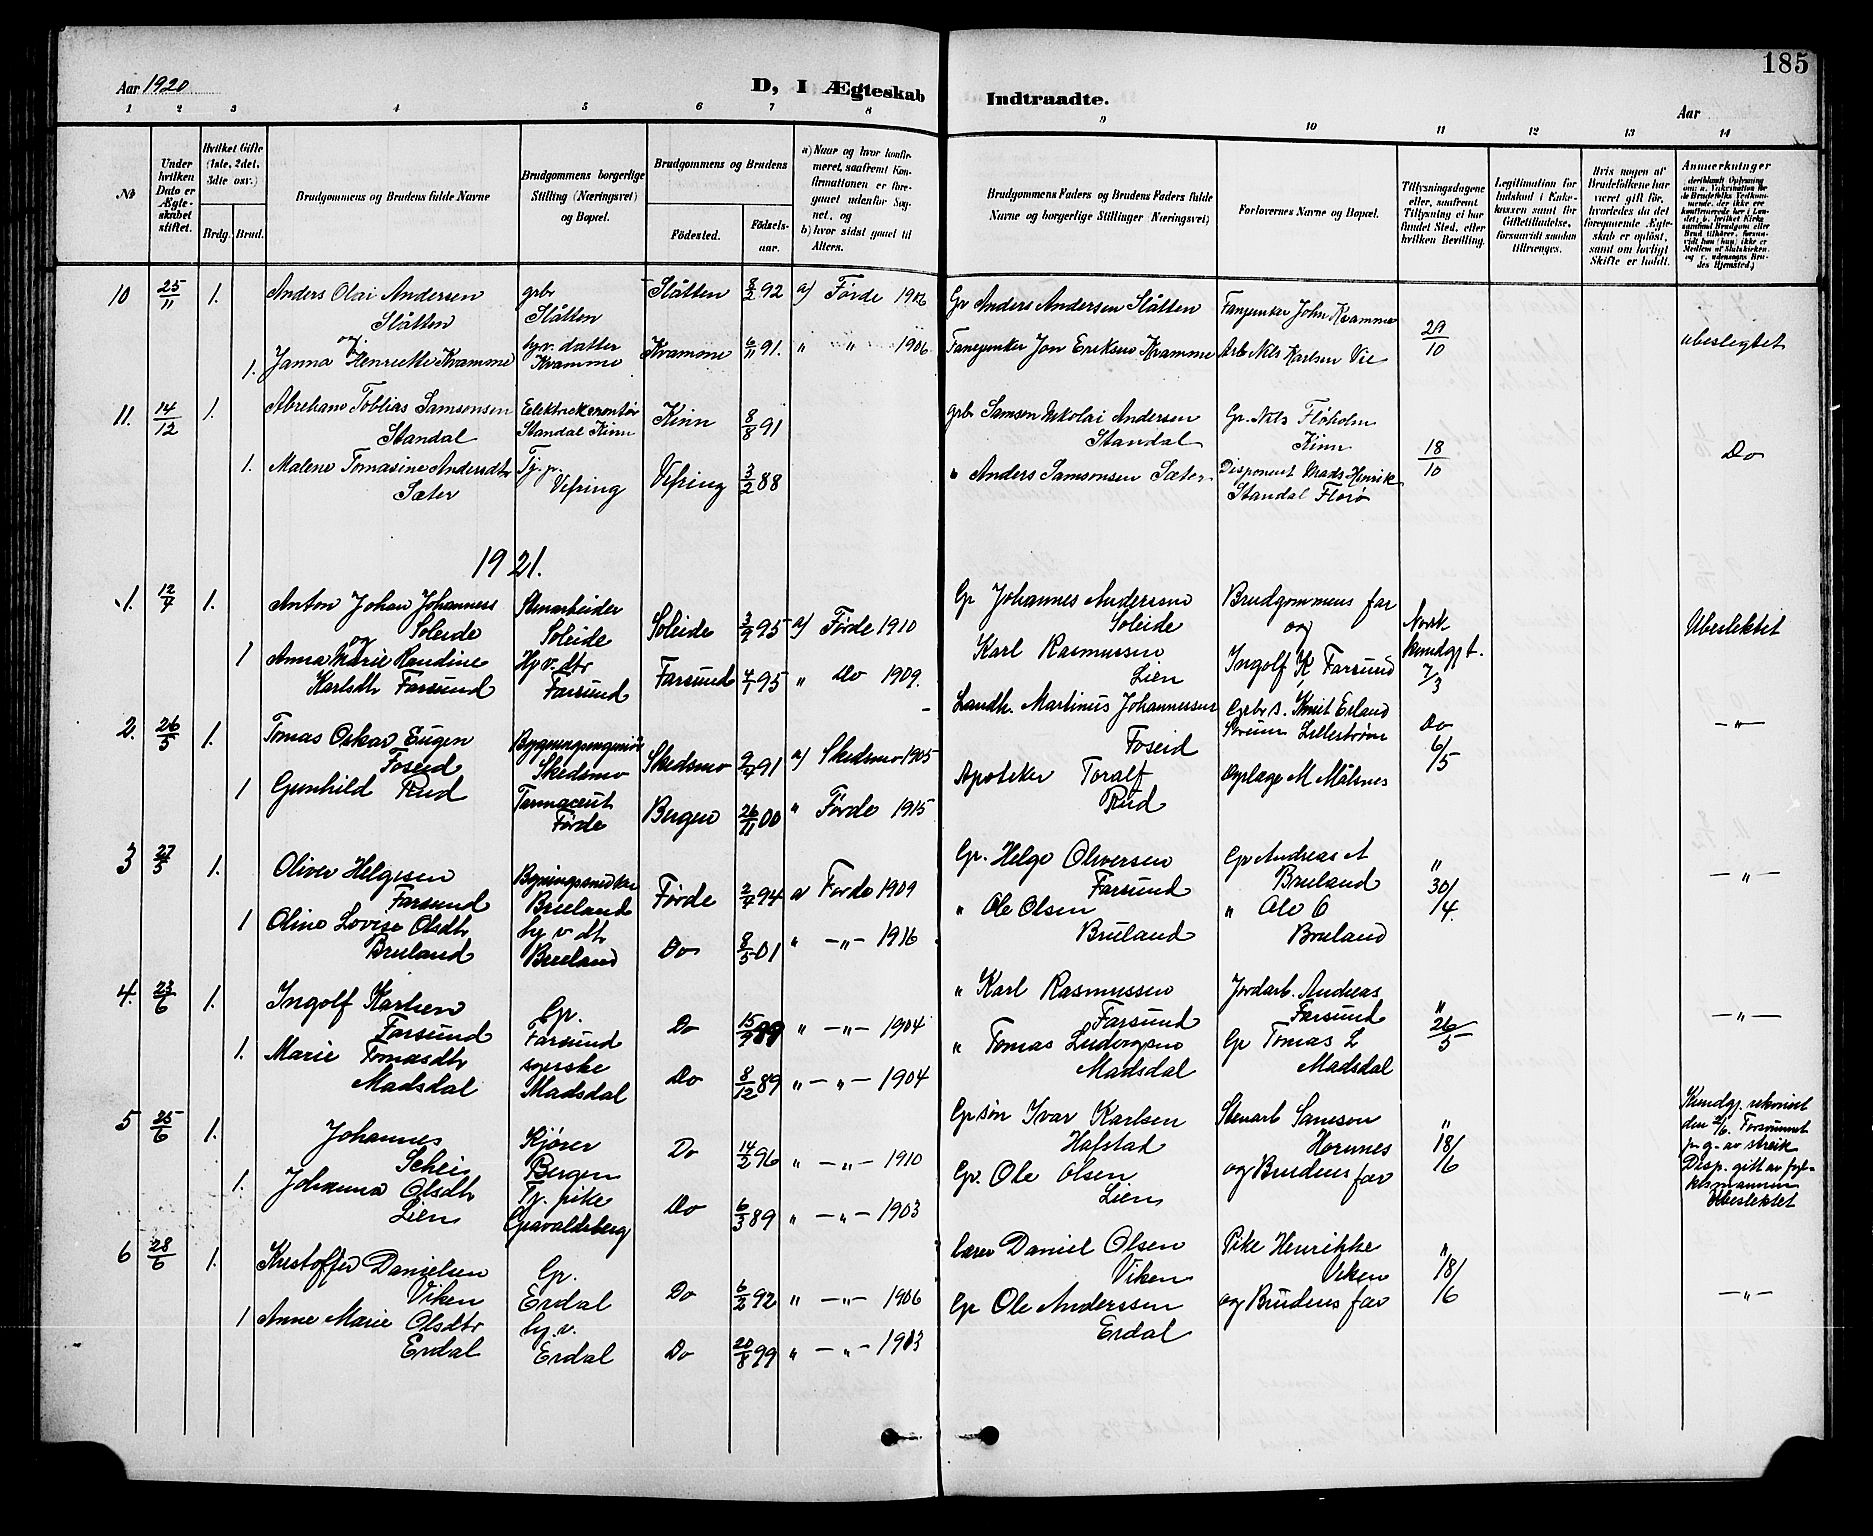 185
Aar 1920
D, I Ægteskab Indtraadte.
Aar
1 2 3 4 5 6 7 8 9 10 11 12 13 14
No
Under hvilken Dato er Ægteskabet stiftet.
Hvilket Gifte (1ste, 2det, 3die osv.)
Brdg. Brud.
Brudgommens og Brudens fulde Navne
Brudgommens borgerlige Stilling (Næringsvei) og Bopæl.
Brudgommens og Brudens
Fødested. Fødselsaar.
a) Naar og hvor konfirmeret, saafremt Konfirmationen er foregaaet udenfor Sognet, og
b) hvor sidst gaaet til Alters.
Brudgommens Faders og Brudens Faders fulde Navne og borgerlige Stillinger (Næringsvei)
Forlovernes Navne og Bopæl.
Tillysningsdagene eller, saafremt Tillysning ei har fundet Sted, efter hvilken Bevilling.
Legitimation for Indskud i Enkekassen samt for Giftetilladelse, forsaavidt saadan tiltrænges.
Hvis nogen af Brudefolkene har været gift før, hvorledes da det foregaaende Ægteskab er opløst, samt om lovligt Skifte er holdt.
Anmerkninger
10 25/11 1. Anders Olai Andersen Slåtten grbr Slåtten Slåtten 8/2 92 a) Førde 1906 Gr Anders Andersen Slåtten Fanejunker John Kvamme 29/10 ubeslegtet
og
1. Janna Henriette Kvamme hj. v. datter Kvamme Kvamme 6/11 91. " " 1906 Fanejunker Jon Eriksen Kvamme Arb Nils Karlsen Vie
11. 14/12 1. Abreham Tobias Samsonsen Standal Elektrikermontør Standal Kinn Kinn 8/8 91 grbr Samson Nikolai Andersen Standal Gr. Nils Floholm Kinn 18/10 Do
1. Malene Tomasine Andersdtr Sæter Tj. p. Vefring Vefring 3/2 88 " Anders Samsonsen Sæter Disponent Mads Henrik Standal Florø
1921.
1. 12/4 1. Anton Johan Johannes Soleide Stenarbeider Soleide Soleide 3/9 95 a) Førde 1910 Gr Johannes Andersen Soleide Brudgommens far Norsk kundgj t. 7/3 Ubeslektet
og og
1 Anna Marie Randine Karlsdtr Farsund Hj v. dtr Farsund Farsund 4/1 95 " Do 1909. Karl Rasmussen Lien Ingolf K Farsund
2. 26/5 1. Tomas Oskar Eugen Foseid Bygningsingeniør Skedsmo Skedsmo 2/7 91 a) Skedsmo 1905 Landh. Martinus Johannessen Foseid Lillestrøm Do 6/5 — " —
1 Gunhild Rud Farmaceut Førde Bergen 26/11 00 " Førde 1915 Apoteker Toralf Rud M Målsnes
3 27/5 1. Oliver Helgesen Farsund Bygningssnedker Bruland Førde 2/7 94 a Førde 1909 Gr. Helge Oliversen Farsund Gr Andreas A Bruland " 30/4 — " —
1 Oline Lovise Olsdtr Bruland hj v dtr Bruland Do 8/5 01 " — " — 1916 " Ole Olsen Bruland " Ole O Bruland
4. 23/6 1. Ingolf Karlsen Farsund Gr. Farsund Do 15/9 89 " — " — 1904 " Karl Rasmussen Farsund Jordarb. Andreas Farsund " 26/5 — " —
1. Marie Tomasdtr Madsdal syerske Madsdal Do 8/12 89 " — " — 1904 " Tomas Ludvigsen Madsdal Gr Tomas L Madsdal
5 25/6 1. Johannes Schei Kjører Bergen Do 14/2 96 " — " — 1910 Gr søn Ivar Karlsen Hafstad Stenarb Samson Hornnes " 18/6 Kundgj. rekvirert den 2/6. Forsømmet p. g. av streik Disp. gitt av fylkesmannen Ubeslektet
1. Johanna Olsdtr Lien Tj. pike Gravaldsberg Do 6/3 89 " — " — 1903 Gr. Ole Olsen Lien og Brudens far
6 28/6 1. Kristoffer Danielsen Viken Gr. Erdal Do 6/2 92 " — " — 1906 Lærer Daniel Olsen Viken Pike Henrikke Viken " 18/6 — " —
1 Anne Marie Olsdtr Erdal hj. v. Erdal Do 20/8 99 " — " — 1913 Gr Ole Anderssen Erdal og Brudens far